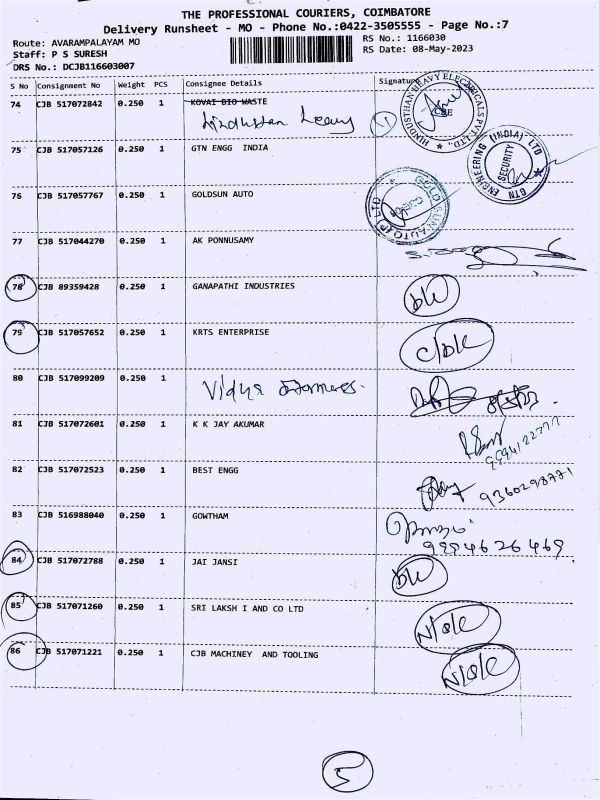 THE PROFESSIONAL COURIERS, COIMBATORE
Delivery Runsheet - MO - Phone No.:0422-3505555 - Page No.:7
Route: AVARAMPALAYAM MO
RS No.: 1166030
Staff: P S SURESH
RS Date: 08-May-2023
DRS No.: DCJB116603007
S No Consignment No Weight PCS Consignee Details Signature
74 CJB 517072842 0.250 1 KOVAI BIO WASTE
Hindustan Heavy 1
HINDUSTHAN HEAVY ELECTRICALS PVT. LTD.
CBE
75 CJB 517057126 0.250 1 GTN ENGG INDIA
GTN ENGINEERING (INDIA) LTD
SECURITY
76 CJB 517057767 0.250 1 GOLDSUN AUTO
77 CJB 517044270 0.250 1 AK PONNUSAMY
78 CJB 89359428 0.250 1 GANAPATHI INDUSTRIES
D/K
79 CJB 517057652 0.250 1 KRTS ENTERPRISE
80 CJB 517099209 0.250 1 Vidya
81 CJB 517072601 0.250 1 K K JAY AKUMAR
82 CJB 517072523 0.250 1 BEST ENGG
9360298771
83 CJB 516988040 0.250 1 GOWTHAM
9994626469.
84 CJB 517072788 0.250 1 JAI JANSI
D/K
85 CJB 517071260 0.250 1 SRI LAKSH I AND CO LTD
86 CJB 517071221 0.250 1 CJB MACHINEY AND TOOLING
5